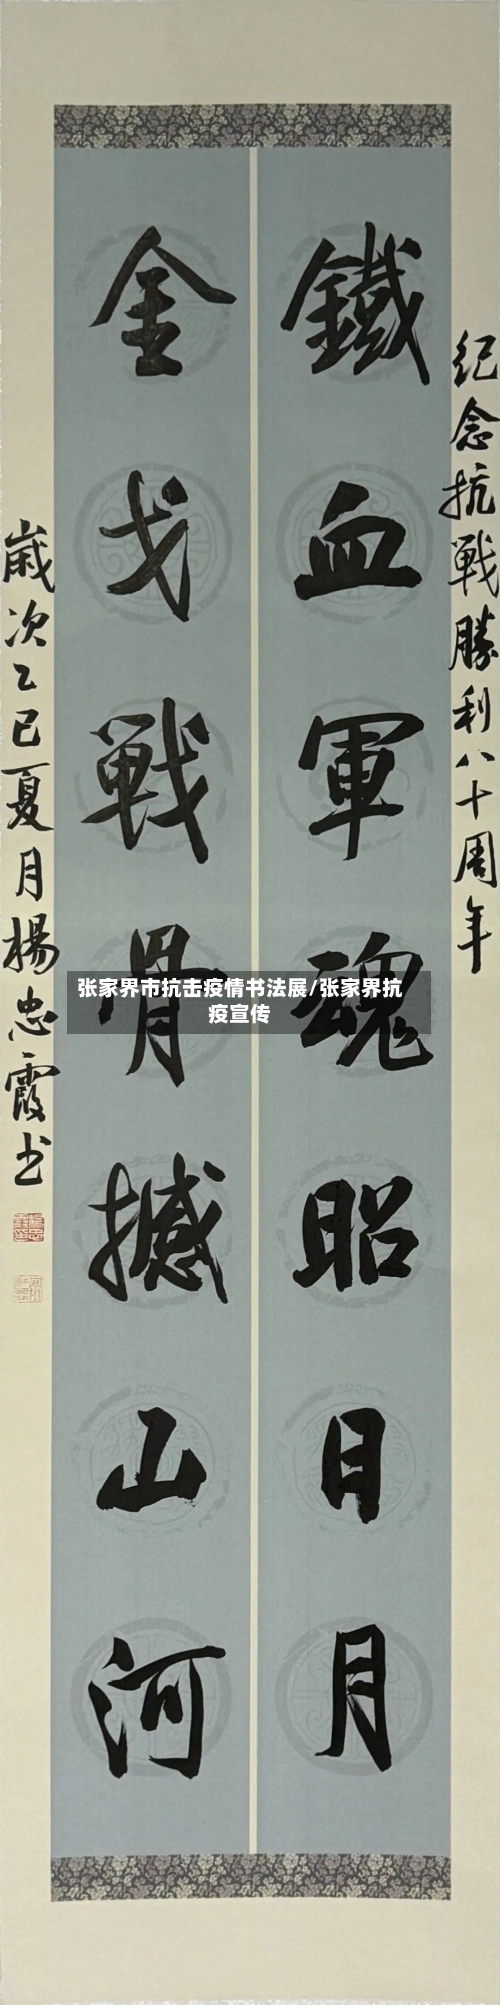 紀念抗戰勝利八十周年
鐵血軍魂昭日月
金戈戰骨撼山河
歲次乙巳夏月楊忠霞书
张家界市抗击疫情书法展/张家界抗
疫宣传